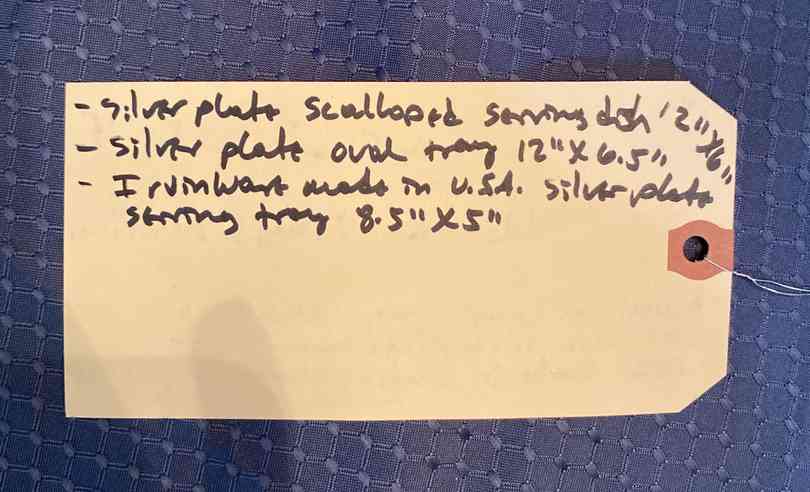 - Silver plate scalloped serving dish 12" X 6"
- Silver plate oval tray 12" X 6.5"
- IrvinWare made in U.S.A. silver plate
serving tray 8.5" X 5"